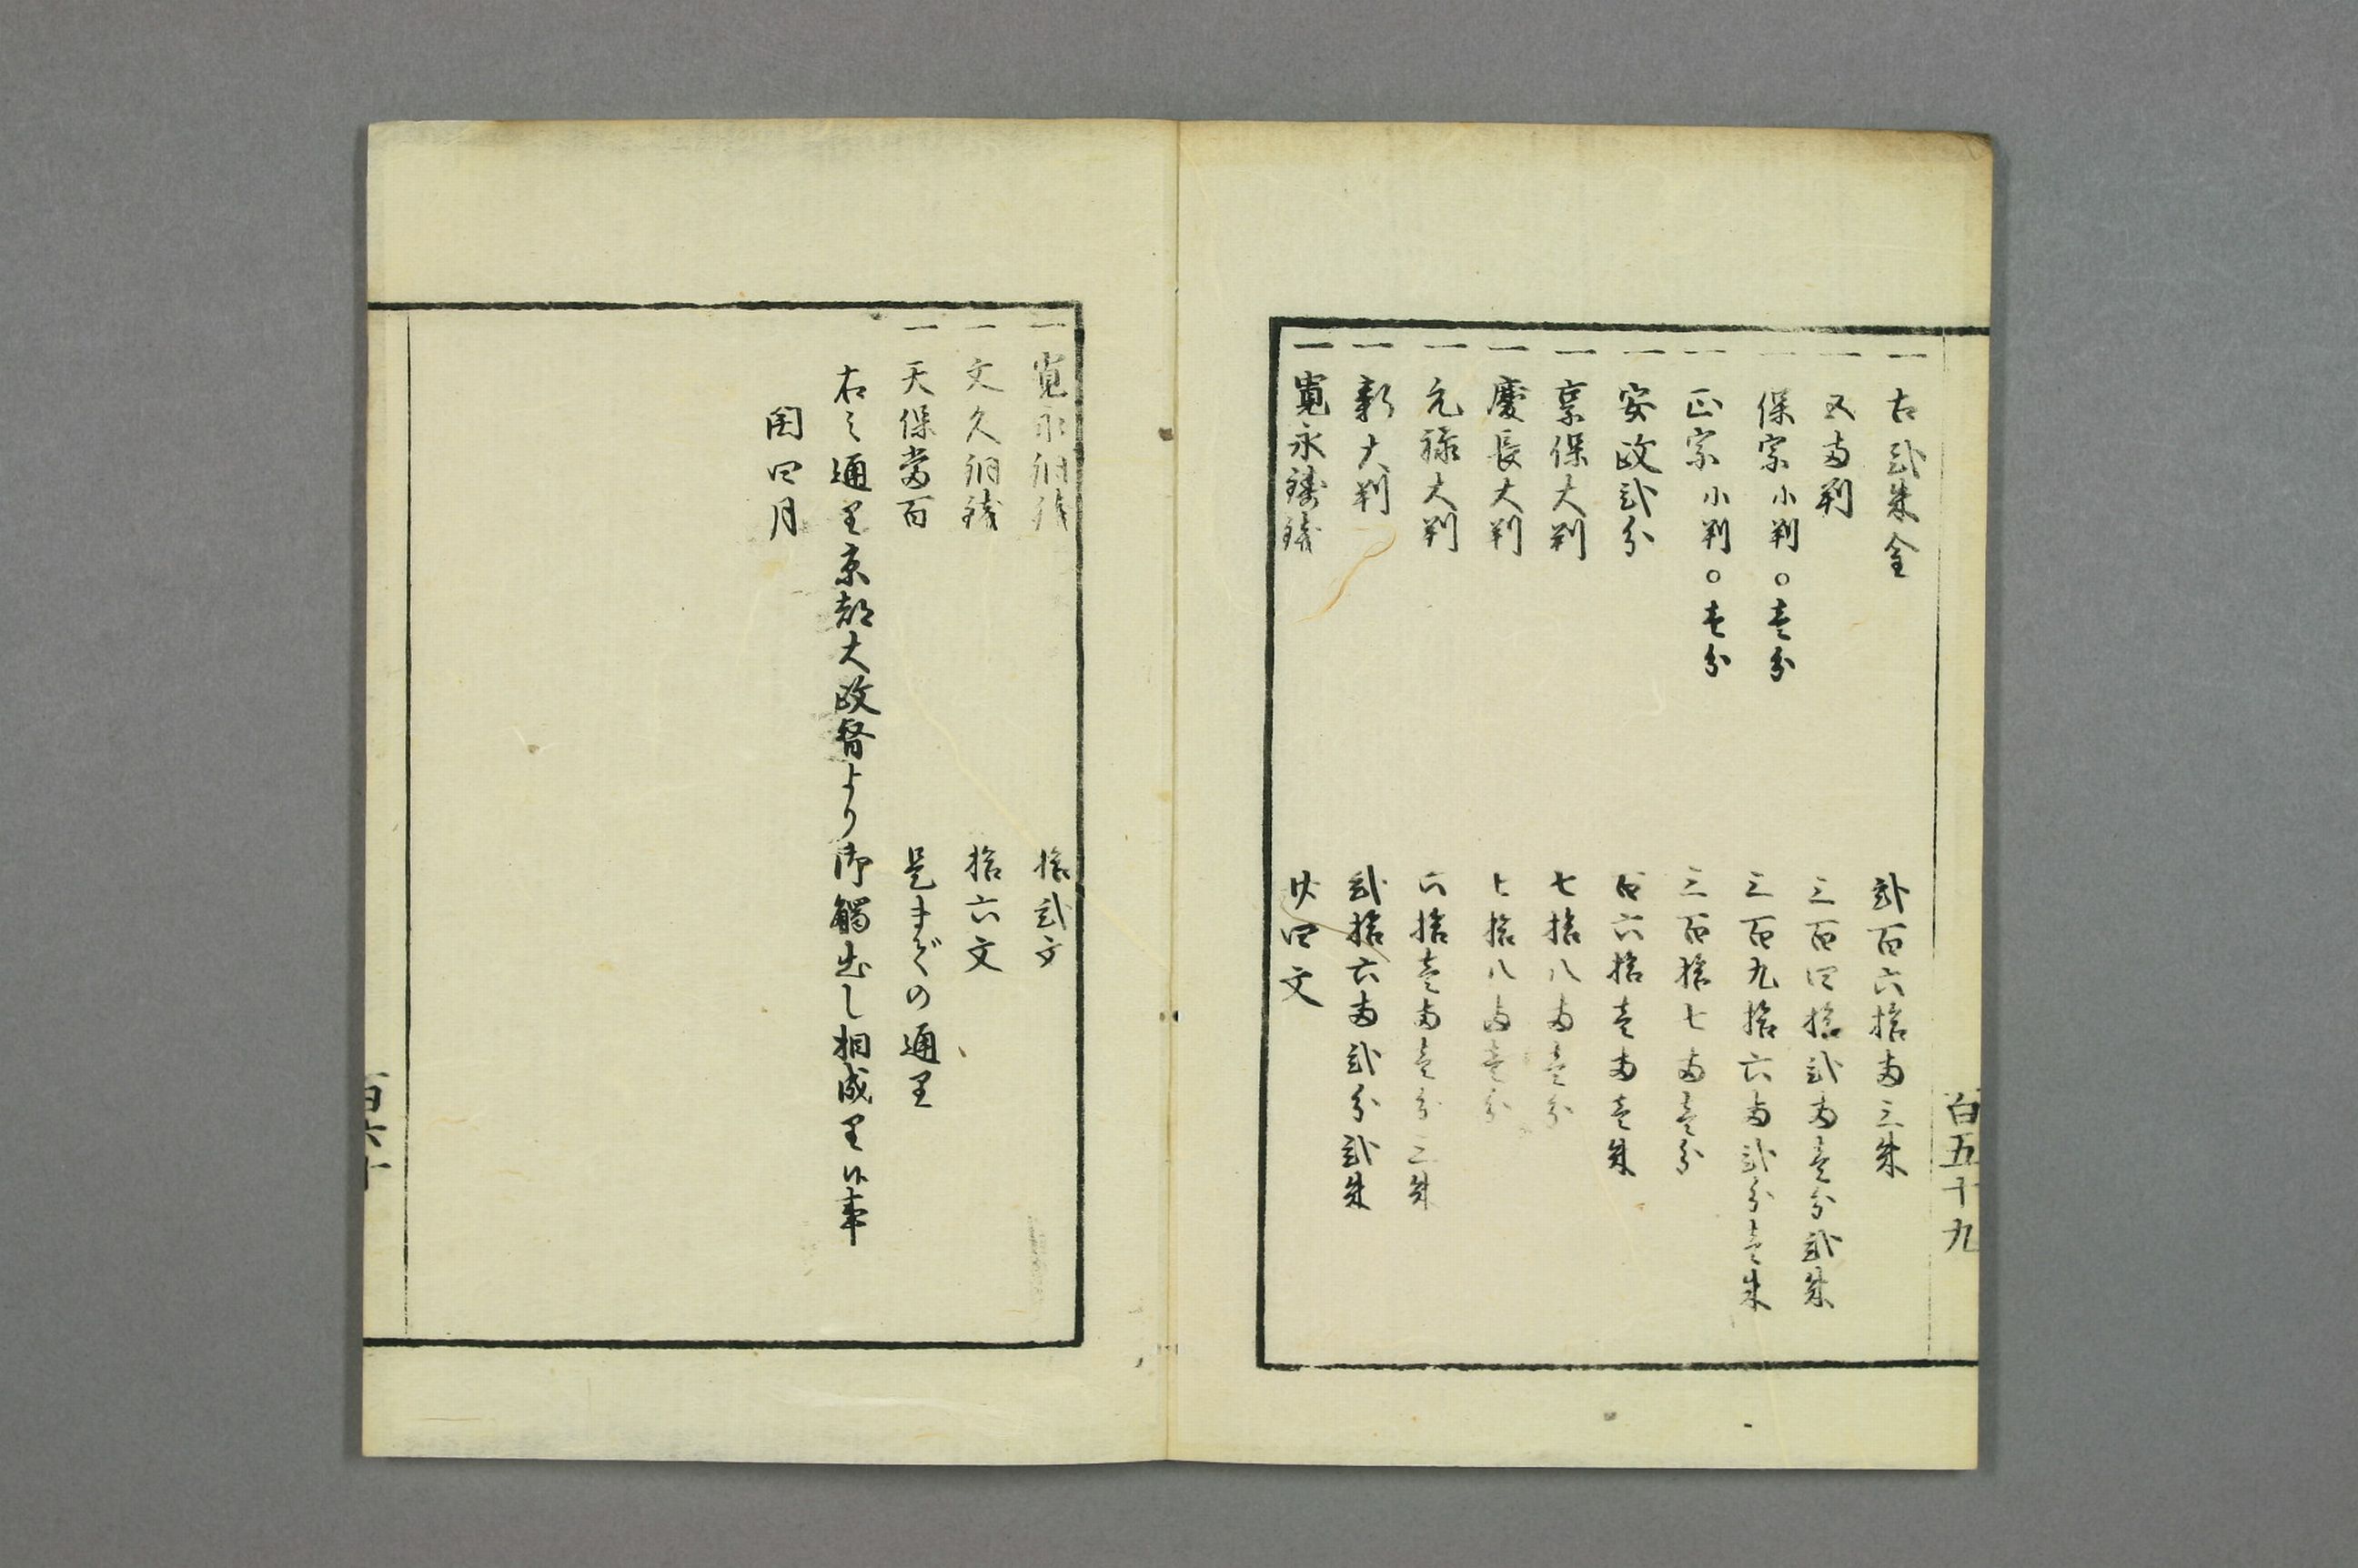 百五十九
一 古弐朱金 弐百六拾両三朱
一 五両判 三百四拾弐両壱分弐朱
一 保字小判○壱分 三百九拾六両弐分壱朱
一 正字小判○壱分 三百拾七両壱分
一 安政弐分 百六拾壱両壱朱
一 享保大判 七拾八両壱分
一 慶長大判 七拾八両壱分
一 元禄大判 六拾壱両壱分三朱
一 新大判 弐拾六両弐分弐朱
一 寛永鋳銭 廿四文
一 寛永銅銭 拾弐文
一 文久銅銭 拾六文
一 天保当百 是までの通里
右之通里京都大政督より御觸出し相成里候事
閏四月
百六十